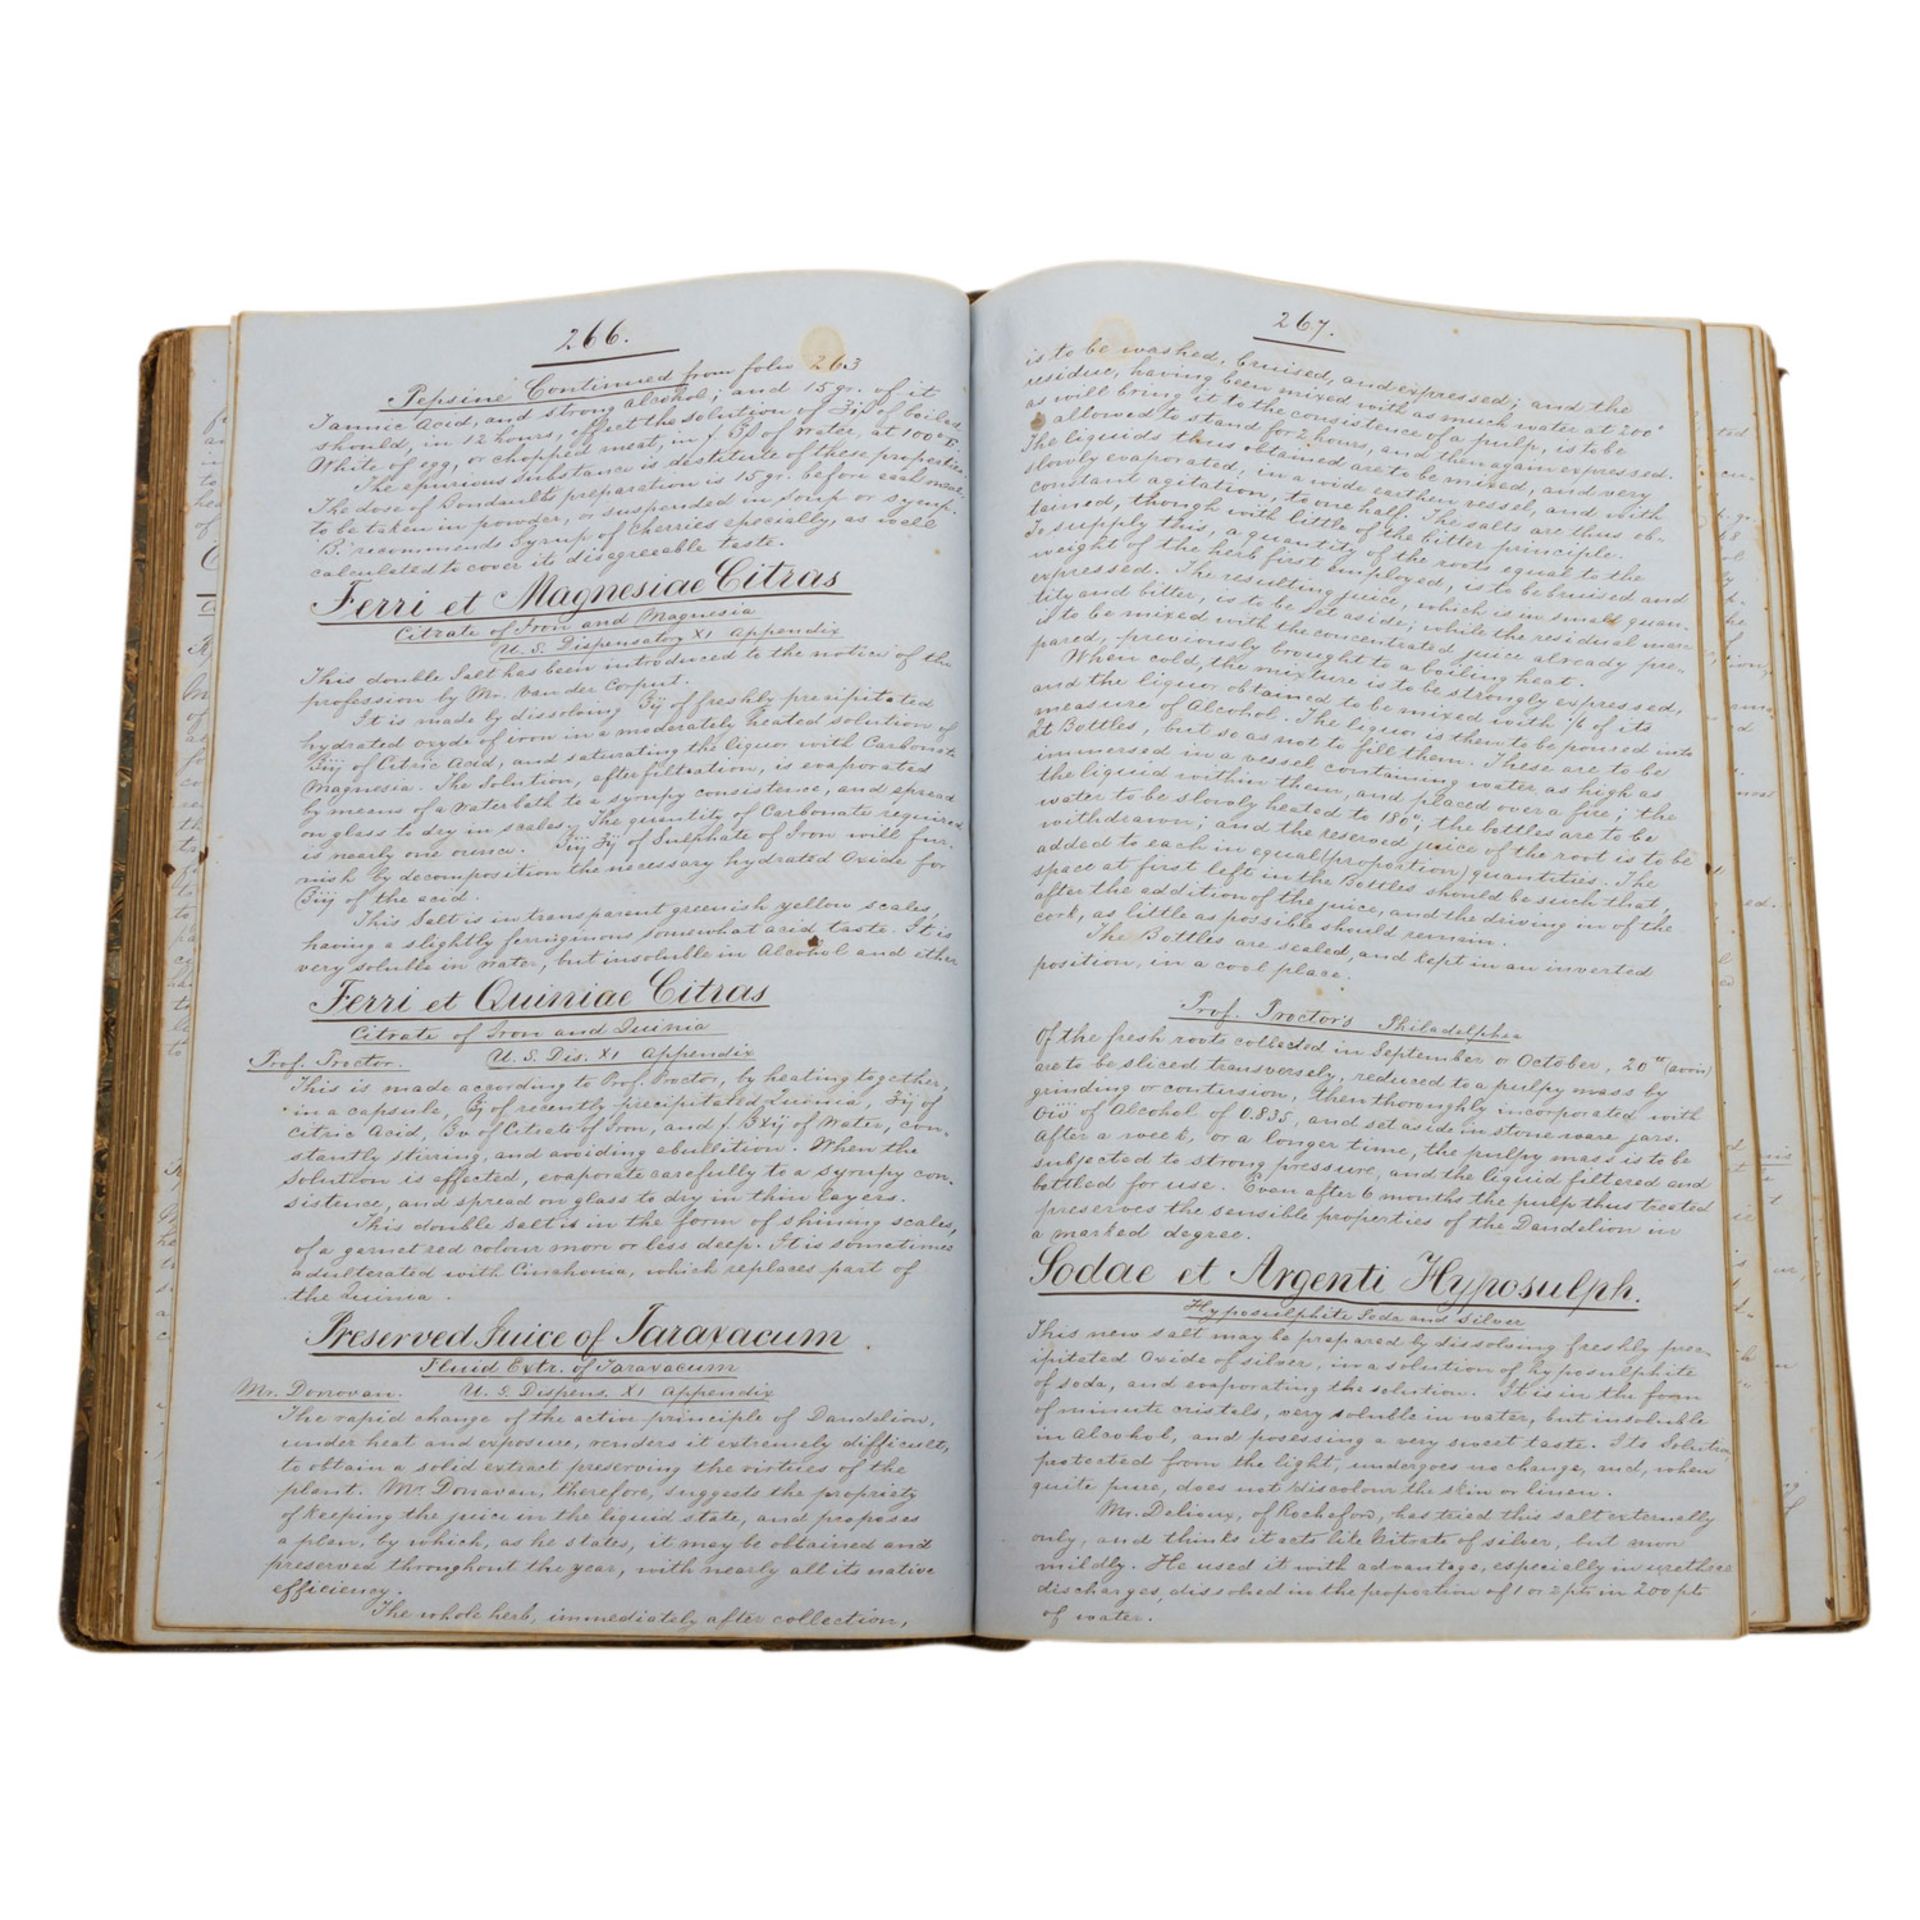 266.
Pepsine Continued from folio 263
Tannic Acid, and strong Alcohol; and 15 gr. of it
should, in 12 hours, effect the solution of ʒiſs of boiled
White of egg, or chopped meat, in f. ℥ſs of water, at 100° F.
The spurious substance is destitute of these properties
The dose of Boudault's preparation is 15 gr. before each meal,
to be taken in powder, or suspended in soup or syrup.
B. recommends Syrup of Cherries specially, as well
calculated to cover its disagreeable taste.
Ferri et Magnesiae Citras
Citrate of Iron and Magnesia
U. S. Dispensatory XI Appendix
This double Salt has been introduced to the notice of the
profession by Mr. Van der Corput.
It is made by dissolving ℥ij of freshly precipitated
hydrated oxyde of iron in a moderately heated solution of
℥iij of Citric Acid, and saturating the liquor with Carbonate
Magnesia. The Solution, after filtration, is evaporated
by means of a water bath to a syrupy consistence, and spread
on glass to dry in scales. The quantity of Carbonate required
is nearly one ounce. ℥iij ʒij of Sulphate of Iron will fur-
nish by decomposition the necessary hydrated Oxide for
℥iij of the acid.
This Salt is in transparent greenish yellow scales,
having a slightly ferruginous somewhat acid taste. It is
very soluble in water, but insoluble in Alcohol and ether
Ferri et Quiniae Citras
Citrate of Iron and Quinia
Prof. Proctor. U. S. Dis. XI Appendix
This is made according to Prof. Proctor, by heating together,
in a capsule, ℥j of recently precipitated Quinia, ʒij of
Citric Acid, ℥v of Citrate of Iron, and f. ℥xij of Water, con-
stantly stirring, and avoiding ebullition. When the
Solution is effected, evaporate carefully to a syrupy con-
sistence, and spread on glass to dry in thin layers.
This double salt is in the form of shining scales,
of a garnet red colour more or less deep. It is sometimes
adulterated with Cinchonia, which replaces part of
the Quinia.
Preserved Juice of Taraxacum
Fluid Extr. of Taraxacum
Mr. Donovan. U. S. Dispens. XI Appendix
The rapid change of the active principle of Dandelion,
under heat and exposure, renders it extremely difficult,
to obtain a solid extract preserving the virtues of the
plant. Mr. Donavan, therefore, suggests the propriety
of keeping the juice in the liquid state, and proposes
a plan, by which, as he states, it may be obtained and
preserved throughout the year, with nearly all its native
efficiency.
The whole herb, immediately after collection,
267.
is to be washed, bruised, and expressed; and the
residue, having been mixed with as much water at 200°
as will bring it to the consistence of a pulp, is to be
allowed to stand for 2 hours, and then again expressed.
The liquids thus obtained are to be mixed, and very
slowly evaporated, in a wide earthen vessel, and with
constant agitation, to one half. The salts are thus ob-
tained, though with little of the bitter principle.
To supply this, a quantity of the roots equal to the
weight of the herb first employed, is to be bruised and
expressed. The resulting juice, which is in small quan-
tity and bitter, is to be set aside; while the residual marc
is to be mixed with the concentrated juice already pre-
pared, previously brought to a boiling heat.
When cold, the mixture is to be strongly expressed,
and the liquor obtained to be mixed with 1/6 of its
measure of Alcohol. The liquor is then to be poured into
Qt Bottles, but so as not to fill them. These are to be
immersed in a vessel containing water, as high as
the liquid within them, and placed over a fire; the
water to be slowly heated to 180°; the bottles are to be
withdrawn; and the reserved juice of the root is to be
added to each in equal (proportion) quantities. The
space at first left in the Bottles should be such that,
after the addition of the juice, and the driving in of the
cork, as little as possible should remain.
The Bottles are sealed, and kept in an inverted
position, in a cool place.
Prof. Proctor's Philadelphia
Of the fresh roots collected in September or October, 20 (avois)
are to be sliced transversely, reduced to a pulpy mass by
grinding or contusion, then thoroughly incorporated with
Oiii of Alcohol of 0.835, and set aside in stone ware jars.
After a week, or a longer time, the pulpy mass is to be
subjected to strong pressure, and the liquid filtered and
bottled for use. Even after 6 months the pulp thus treated
preserves the sensible properties of the Dandelion in
a marked degree.
Sodae et Argenti Hyposulph.
Hyposulphite Soda and Silver
This new salt may be prepared by dissolving freshly prec-
ipitated Oxide of silver, in a solution of hyposulphite
of soda, and evaporating the solution. It is in the form
of minute cristals, very soluble in water, but insoluble
in Alcohol, and posessing a very sweet taste. Its Solution,
protected from the light, undergoes no change, and, when
quite pure, does not discolour the skin or linen.
Mr. Delioux, of Rocheford, has tried this salt externally
only, and thinks it acts like Nitrate of silver, but more
mildly. He used it with advantage, especially in urethral
discharges, dissolved in the proportion of 1 or 2 pts in 200 pts
of water.